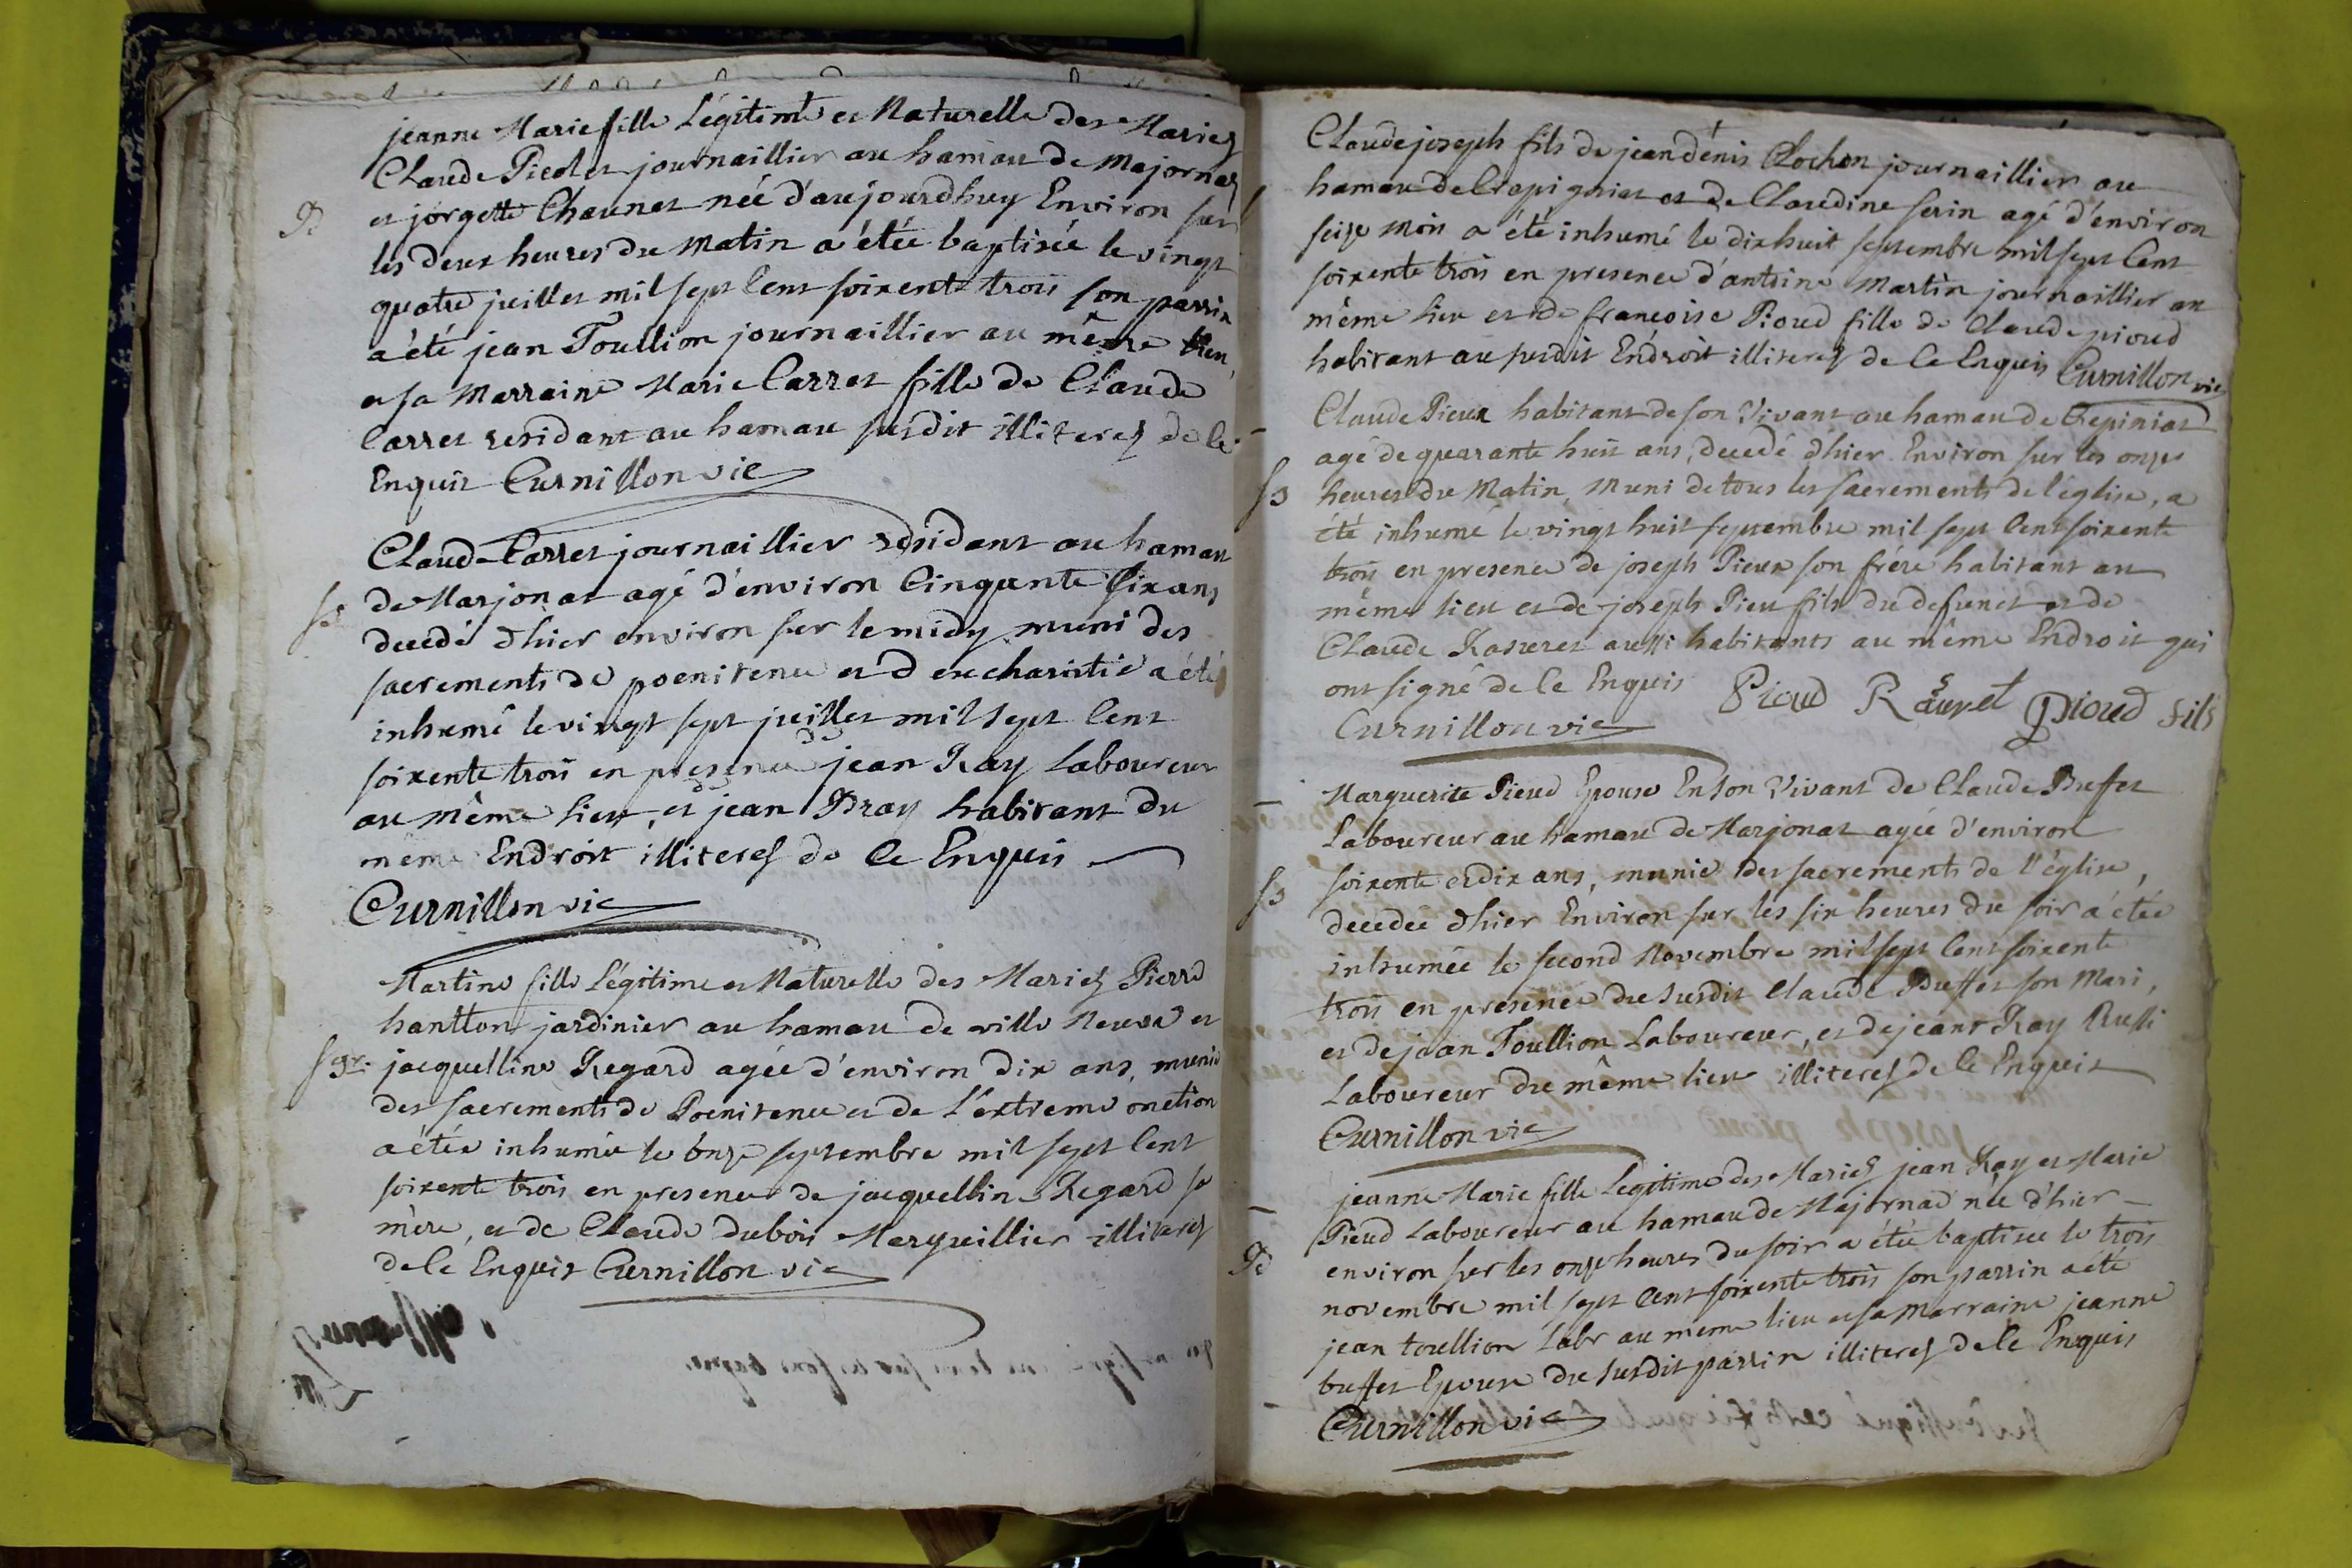 jeanne Marie fille Légitime et Naturelle des Mariez
Claude Piedet journaillier au hamau de Majornaz
et jorgette Chaunet née d'aujourdhuy Environ sur
les deux heures du Matin a étée baptisée le vingt
quatre juillet mil sept Cent soixente trois son parrin
a été jean Toullion journaillier au même lieu,
et sa Marraine Marie Carret fille de Claude
Carret residant au hamau susdit illiterez de le
Enquis Curnillon vic
Claude Carret journaillier residant au hamau
de Marjonat agé d'environ Cinquante six ans
decedé d'hier environ sur le midy muni des
sacrements de poenitence et d eucharistie a été
inhumé le vingt sept juillet mil sept Cent
soixente trois en presence de jean Ray Laboureur
au même lieu, et de jean Bray habitant du
même Endroit illiterez de ce Enquis
Curnillon vic
Martine fille Légitime et Naturelle des Mariez Pierre
hantton jardinier au hamau de ville Neuve et
jacquelline Regard agée d'environ dix ans, munie
des sacrements de Poenitence et de L'extreme onction
a étée inhumée le onze septembre mil sept Cent
soixente trois en presence de jacquelline Regard sa
mère, et de Claude dubois Marguillier illiterez
de le Enquis Curnillon vic
Claude joseph fils de jean dénis Clochon journaillier au
hamau de Crapigniat et de Claudine serin agé d'environ
seize Mois a été inhumé le dix huit septembre mil sept Cent
soixente trois en presence d'antoine Martin journaillier au
même lieu et de francoise Pioud fille de Claude pioud
habitant au susdit Endroit illiterez de le Enquis Curnillon vic
Claude Pieux habitant de son Vivant au hamau de Crepiniat
agé de quarante huit ans, decedé d'hier Environ sur les onze
heures du Matin, Muni de tous les sacrements de l'église, a
été inhumé le vingt huit septembre mil sept Cent soixente
trois en presence de joseph Pieux son frére habitant au
même lieu et de joseph Pieu fils du defunct et de
Claude Rasuret aussi habitants au même Endroit qui
ont signé de le Enquis Pioud Rasuret Pioud fils
Curnillon vic
Marguerite Pieud Epouse En son Vivant de Claude Buffet
Laboureur au hamau de Marjonat agée d'environ
soixente et dix ans, munie des sacrements de l'église,
decedée d'hier Environ sur les six heures du soir a étée
inhumée le second Novembre mil sept Cent soixente
trois en presence du susdit Claude Buffet son Mari,
et de jean Toullion Laboureur, et de jean Ray Aussi
Laboureur du même lieu illiterez de le Enquis
Curnillon vic
jeanne Marie fille Legitime des Mariez jean Ray et Marie
Pieud Laboureur au hamau de Majornad née d'hier
environ sur les onze heures du soir a étée baptisée le trois
novembre mil sept Cent soixente trois son parrin a été
jean toullion Labr au meme lieu et sa Marraine jeanne
buffet Epouse du susdit parrin illiterez de le Enquis
Curnillon vic